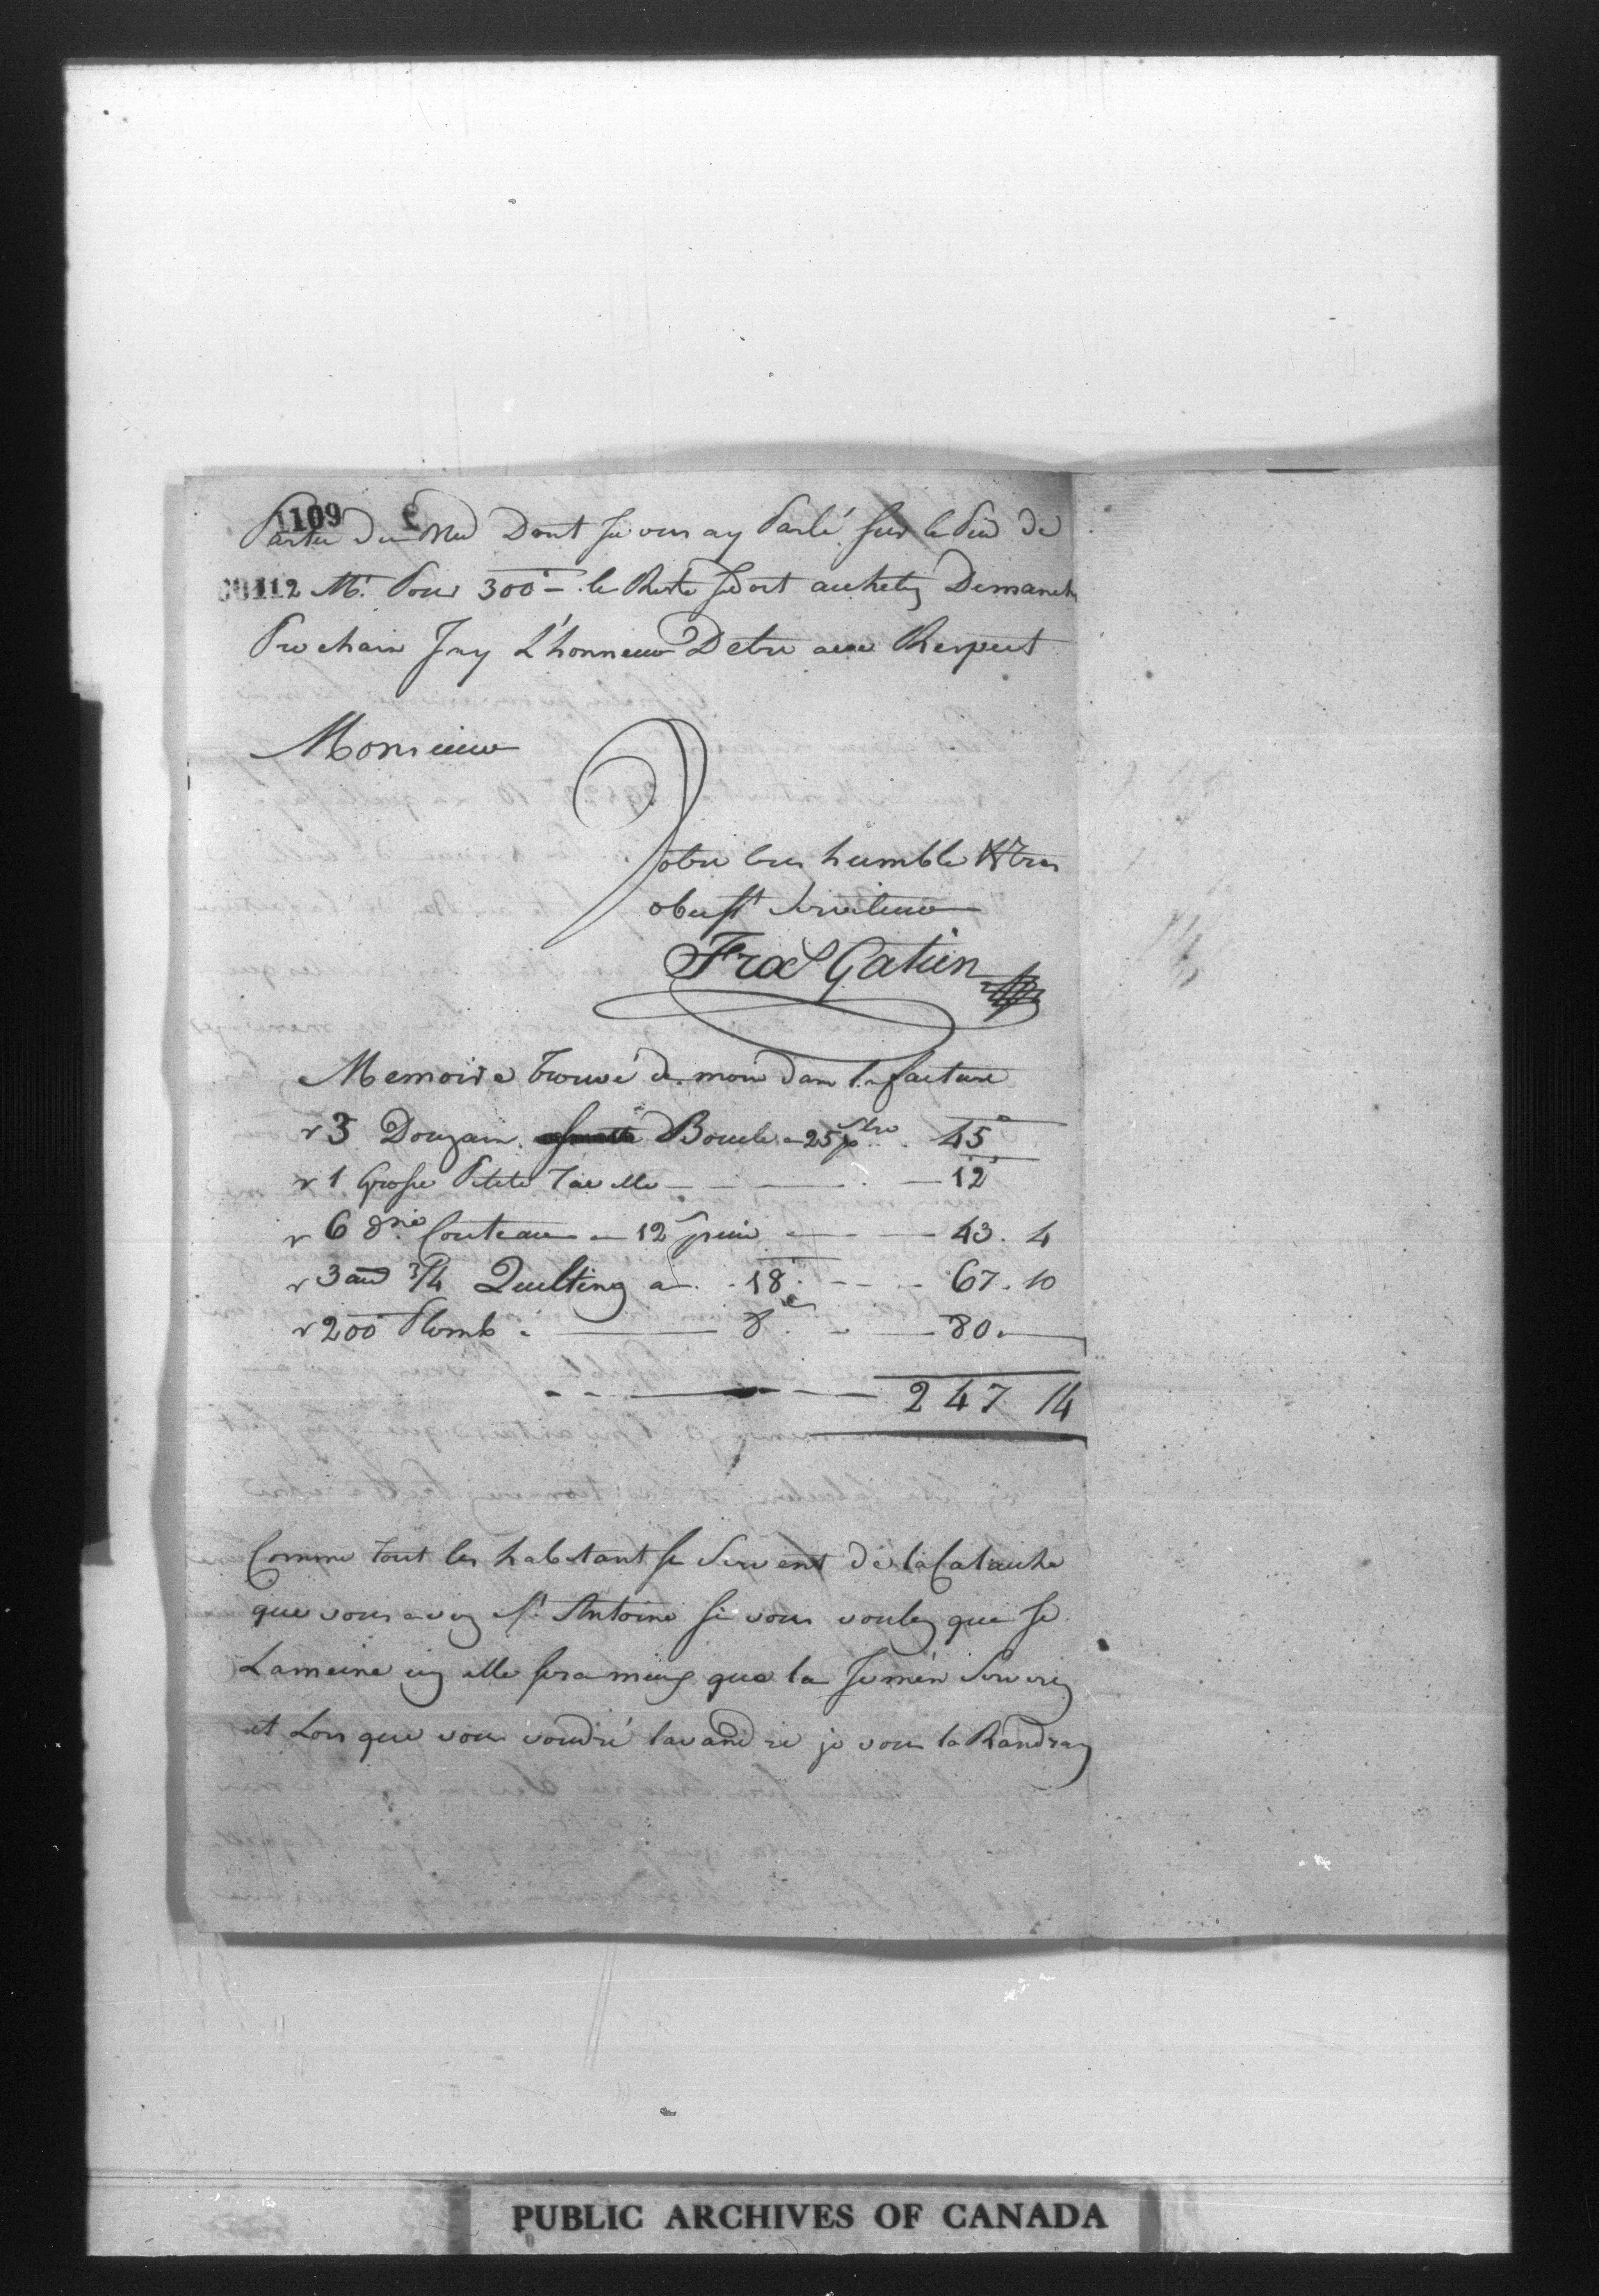 1109 2
Partie du Md Dont Je vous ay Parlé sur le Pied de
00112 Mr. Pour 300 - le Reste Je doit acheter Dimanche
Prochain Jay L'honneur Detre avec Respect
Monsieur
Votre tres humble & tres
obeist Serviteur
Frax Gatien
Memoire Trouvé de moin dans la facture
r 3 Douzain Boucle - 25 45
r 1 Grosse Petite 12
r 6 dne Couteau - 12 43. 4
r 3 au 3/4 Quilting a 18 67. 10
r 200 Plomb 8 80.
247 14
Comme tout les habitant se Servent de la Calauche
que vous avez St. Antoine si vous voulez que Je
Lameine icy elle sera mieux que la Jumen Serviroy
et Lors que vous voudré lavandre je vous la Randray
PUBLIC ARCHIVES OF CANADA